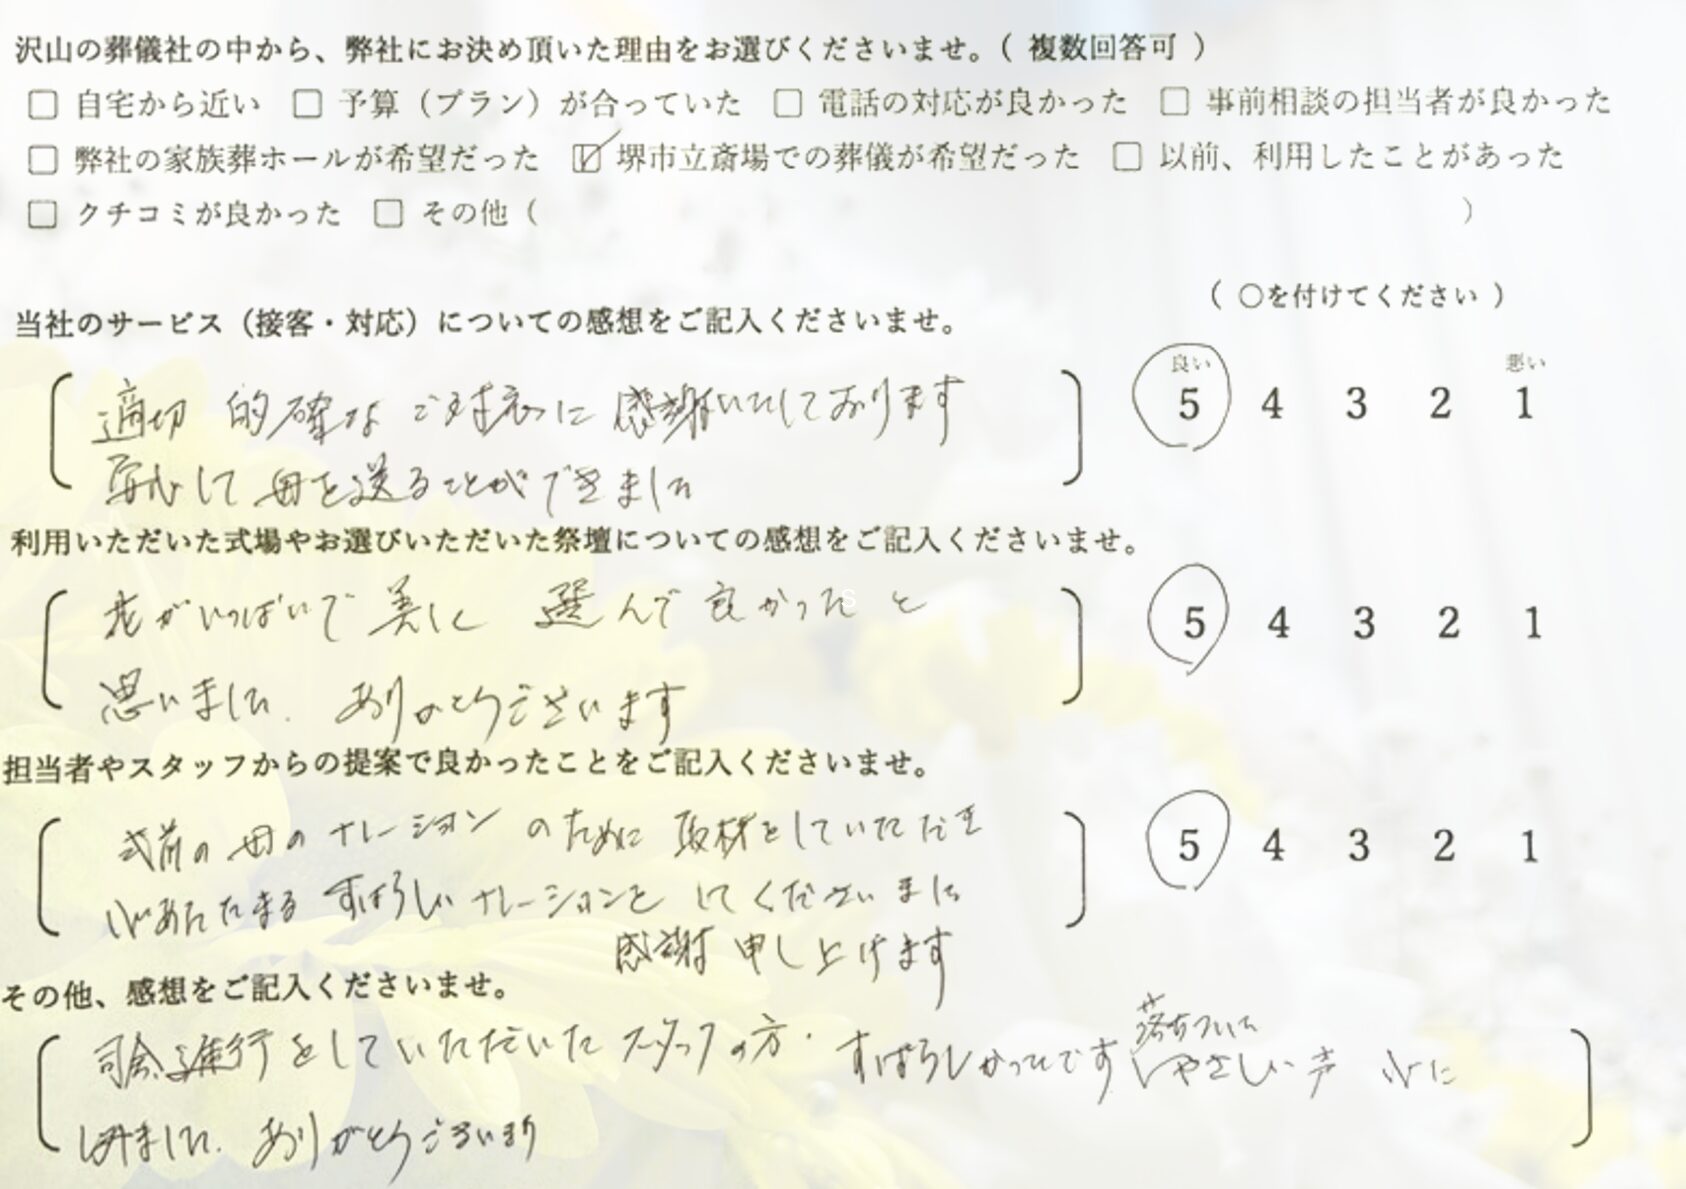 沢山の葬儀社の中から、弊社にお決め頂いた理由をお選びくださいませ。（ 複数回答可 ）
□ 自宅から近い □ 予算（プラン）が合っていた □ 電話の対応が良かった □ 事前相談の担当者が良かった
□ 弊社の家族葬ホールが希望だった ☑ 堺市立斎場での葬儀が希望だった □ 以前、利用したことがあった
□ クチコミが良かった □ その他（ ）
（ ○を付けてください ）
当社のサービス（接客・対応）についての感想をご記入くださいませ。
良い 悪い
5 4 3 2 1
適切 的確な ご対応に 感謝いたしております
安心して 母を送ることができました
利用いただいた式場やお選びいただいた祭壇についての感想をご記入くださいませ。
花がいっぱいで 美しく 選んで 良かった と
5 4 3 2 1
思いました. ありがとうございます
担当者やスタッフからの提案で良かったことをご記入くださいませ。
式前の 母の ナレーション のために 取材をしていただき
5 4 3 2 1
心あたたまる すばらしい ナレーションを してくださいました
感謝 申し上げます
その他、感想をご記入くださいませ。
司会進行をしていただいた スタッフの方. すばらしかったです 落ちついた やさしい 声 心に
しみました. ありがとうございます